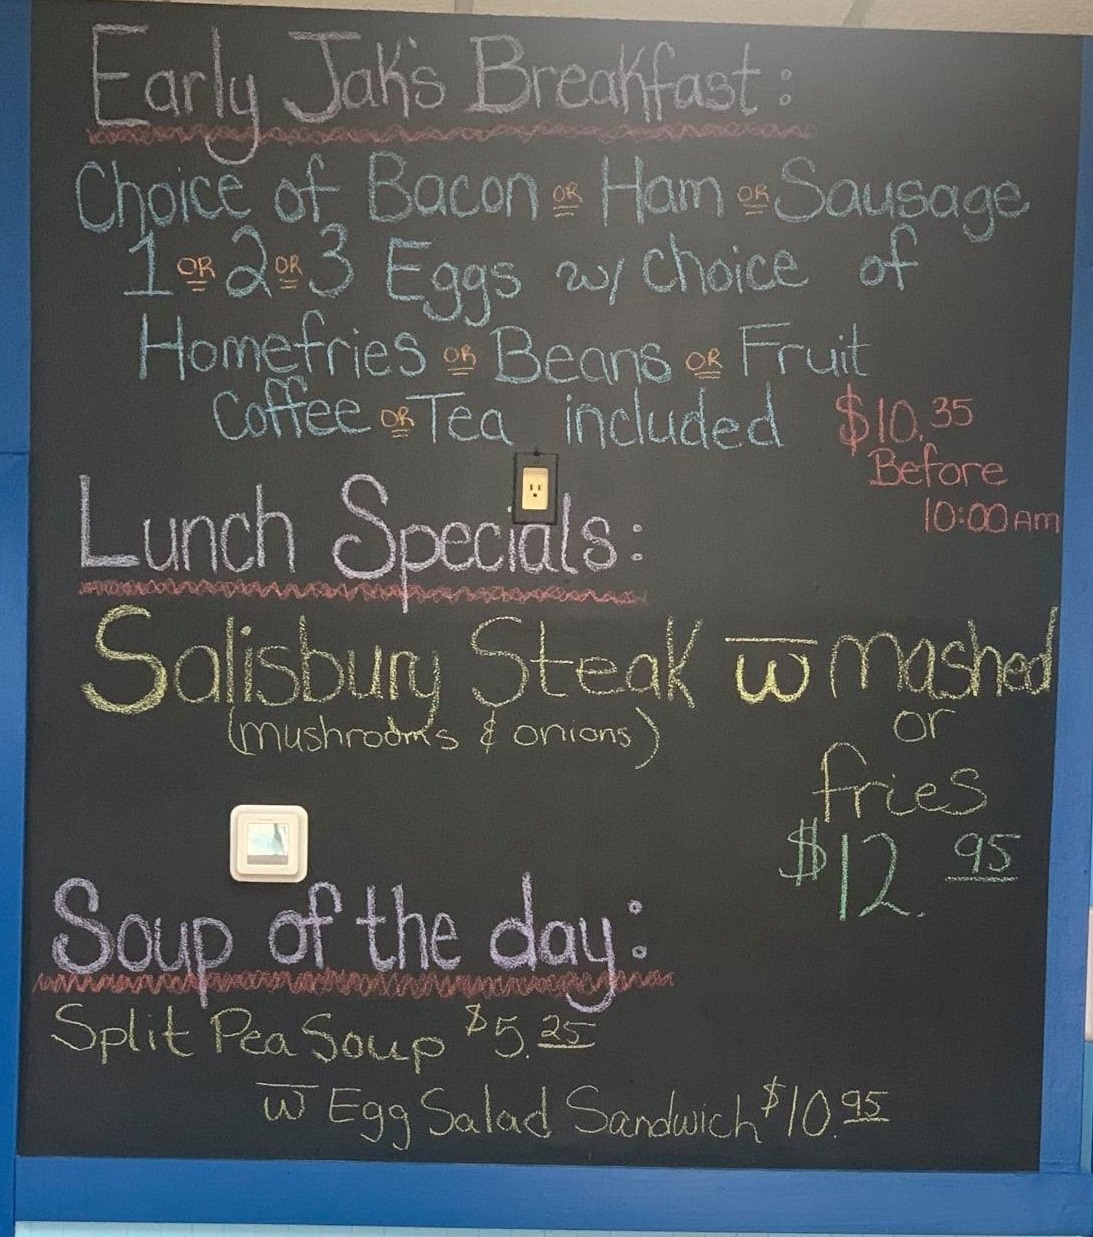 Early Jak's Breakfast:
Choice of Bacon OR Ham OR Sausage
1 OR 2 OR 3 Eggs w/ choice of
Homefries OR Beans OR Fruit
Coffee OR Tea included $10.35
Before
10:00 AM
Lunch Specials:
Salisbury Steak w̅ mashed
(mushrooms & onions) or
fries
$12.95
Soup of the day:
Split Pea Soup $5.25
w̅ Egg Salad Sandwich $10.95